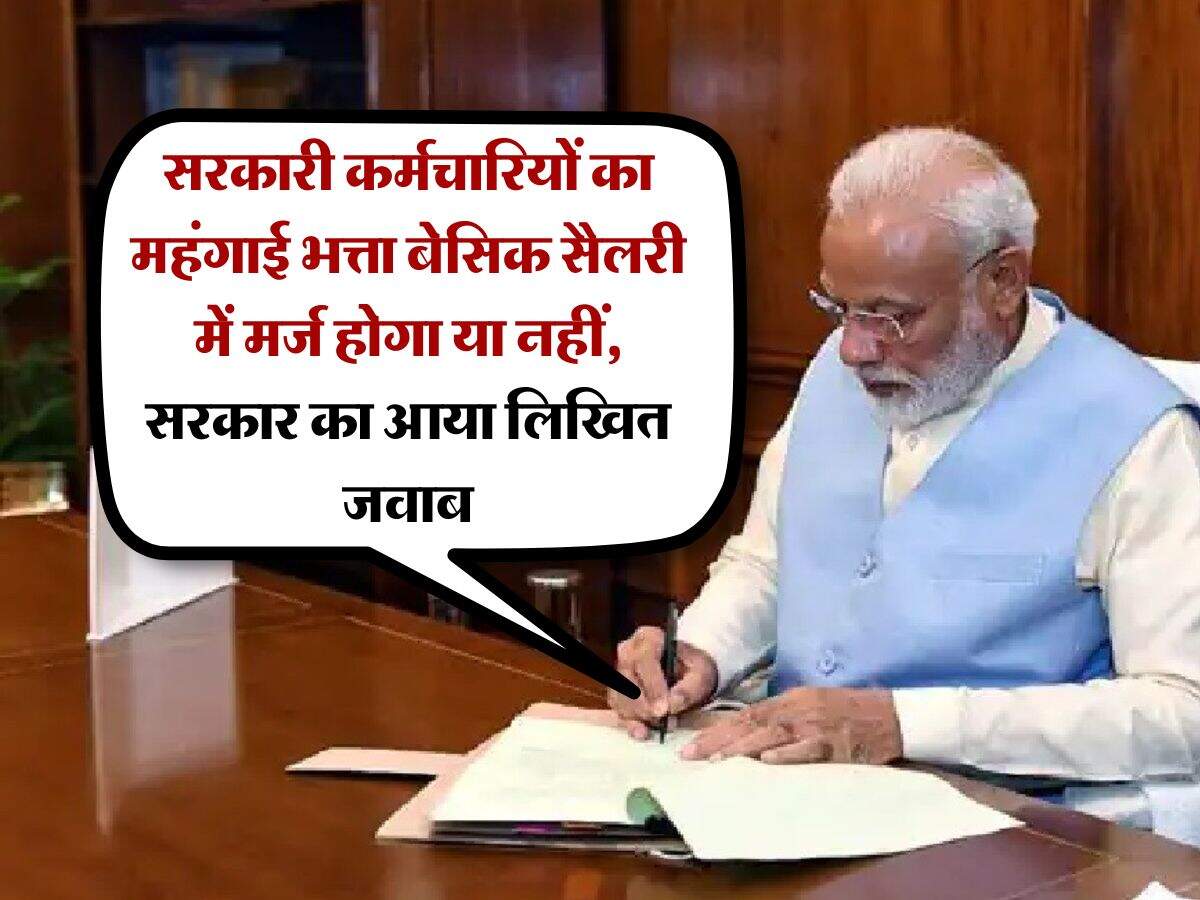 सरकारी कर्मचारियों का
महंगाई भत्ता बेसिक सैलरी
में मर्ज होगा या नहीं,
सरकार का आया लिखित
जवाब